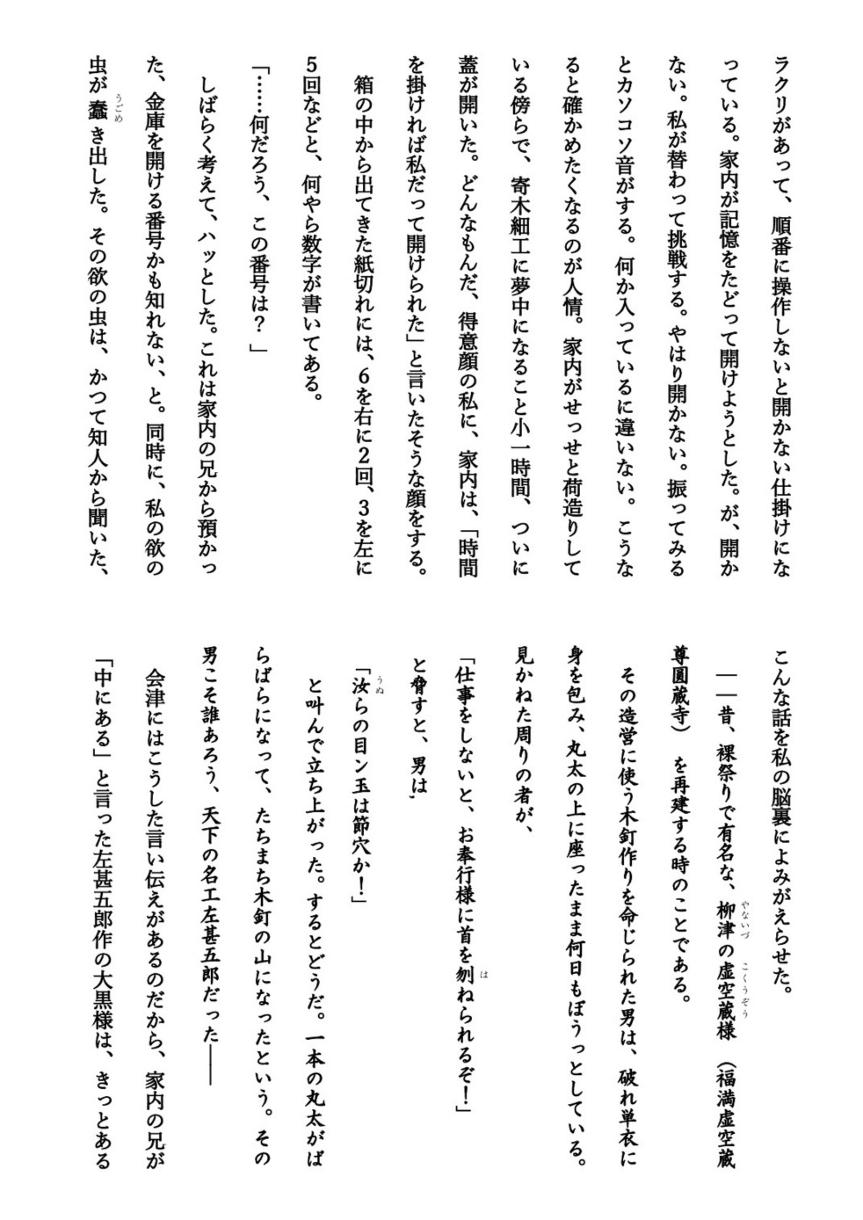 ラクリがあって、順番に操作しないと開かない仕掛けにな
っている。家内が記憶をたどって開けようとした。が、開か
ない。私が替わって挑戦する。やはり開かない。振ってみる
とカソコソ音がする。何か入っているに違いない。こうな
ると確かめたくなるのが人情。家内がせっせと荷造りして
いる傍らで、寄木細工に夢中になること小一時間、ついに
蓋が開いた。どんなもんだ、得意顔の私に、家内は、「時間
を掛ければ私だって開けられた」と言いたそうな顔をする。
箱の中から出てきた紙切れには、6を右に2回、3を左に
5回などと、何やら数字が書いてある。
「……何だろう、この番号は？」
しばらく考えて、ハッとした。これは家内の兄から預かっ
た、金庫を開ける番号かも知れない、と。同時に、私の欲の
虫が蠢き出した。その欲の虫は、かつて知人から聞いた、
うごめ
こんな話を私の脳裏によみがえらせた。
――昔、裸祭りで有名な、柳津の虚空蔵様（福満虚空蔵
やないづ こくうぞう
尊圓蔵寺）を再建する時のことである。
その造営に使う木釘作りを命じられた男は、破れ単衣に
身を包み、丸太の上に座ったまま何日もぼうっとしている。
見かねた周りの者が、
「仕事をしないと、お奉行様に首を刎ねられるぞ！」
は
と脅すと、男は、
「汝らの目ン玉は節穴か！」
うぬ
と叫んで立ち上がった。するとどうだ。一本の丸太がば
らばらになって、たちまち木釘の山になったという。その
男こそ誰あろう、天下の名工左甚五郎だった――
会津にはこうした言い伝えがあるのだから、家内の兄が
「中にある」と言った左甚五郎作の大黒様は、きっとある